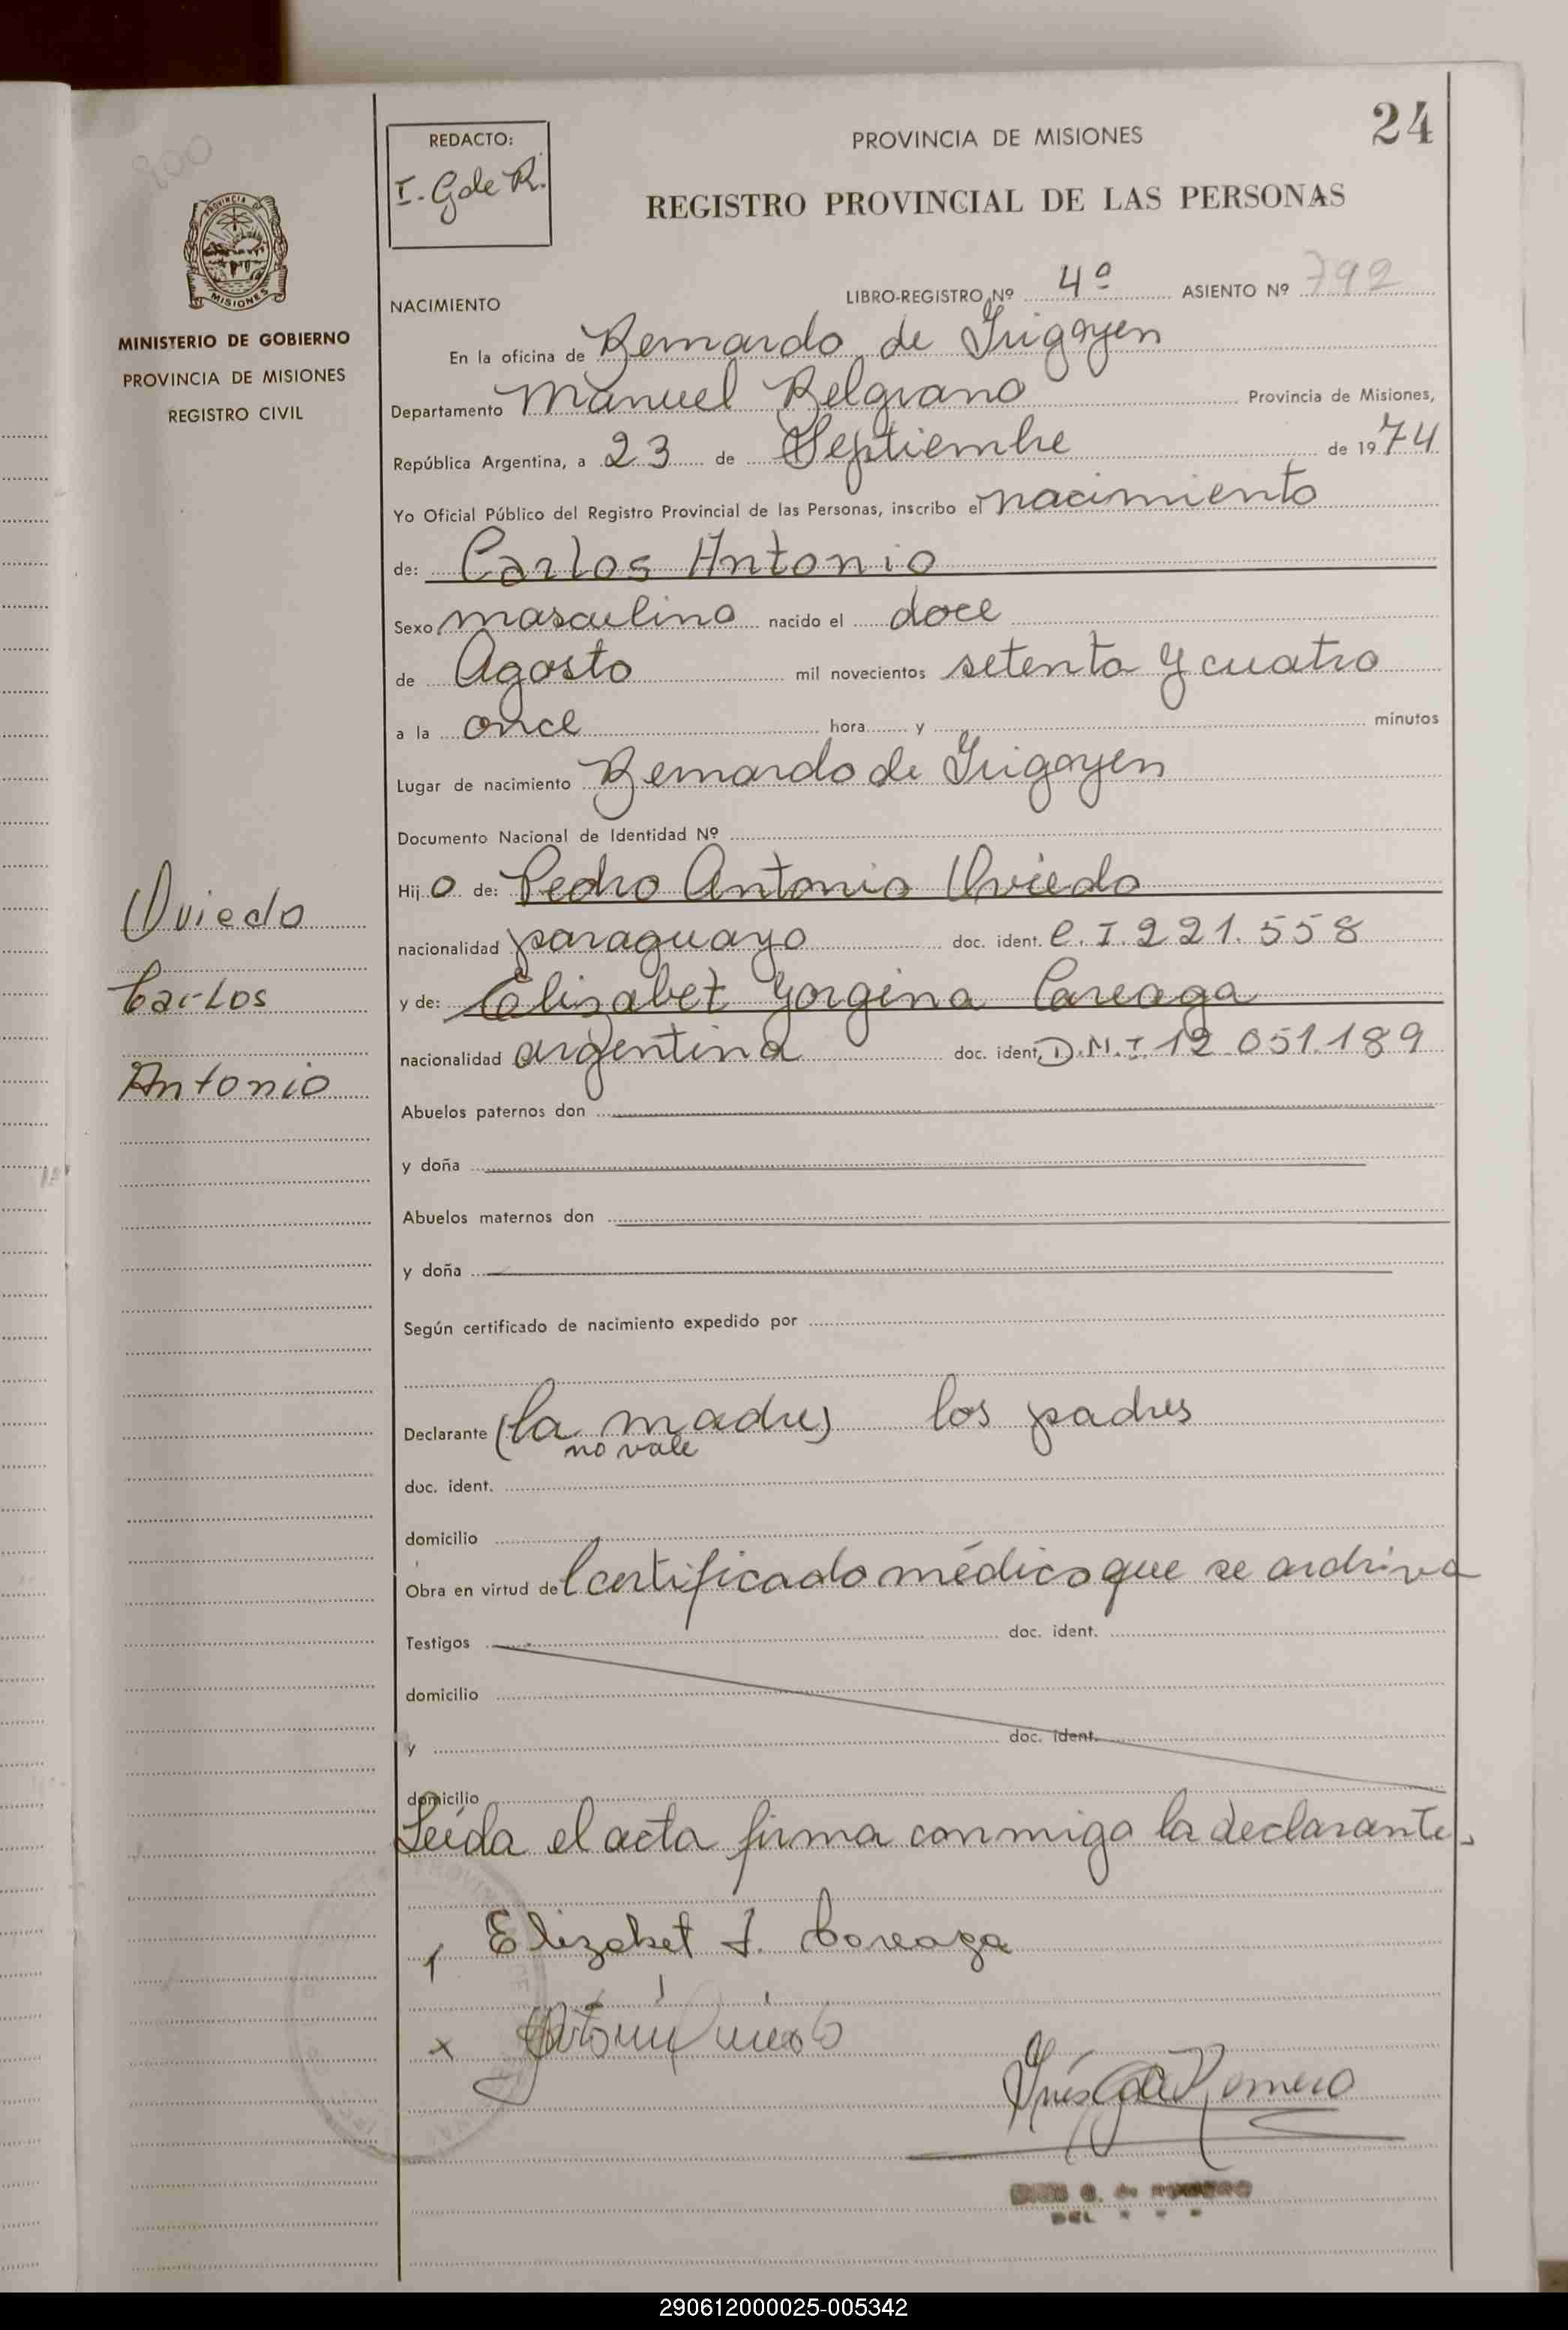 24
REDACTO:
I. G de R.
PROVINCIA DE MISIONES
REGISTRO PROVINCIAL DE LAS PERSONAS
900
PROVINCIA DE
MISIONES
MINISTERIO DE GOBIERNO
PROVINCIA DE MISIONES
REGISTRO CIVIL
NACIMIENTO LIBRO-REGISTRO Nº 4º ASIENTO Nº 792
En la oficina de Bernardo de Irigoyen
Departamento Manuel Belgrano Provincia de Misiones,
República Argentina, a 23 de Septiembre de 1974
Yo Oficial Público del Registro Provincial de las Personas, inscribo el nacimiento
de: Carlos Antonio
Sexo masculino nacido el doce
de Agosto mil novecientos setenta y cuatro
a la once hora y minutos
Lugar de nacimiento Bernardo de Irigoyen
Documento Nacional de Identidad Nº
Hij o de: Pedro Antonio Oviedo
Oviedo
nacionalidad paraguayo doc. ident. C. I 221.558
Carlos
y de: Elizabet Yorgina Careaga
nacionalidad argentina doc. ident. D.N.I 12 051.189
Antonio
Abuelos paternos don
y doña
Abuelos maternos don
y doña
Según certificado de nacimiento expedido por
Declarante (la madre) los padres
no vale
doc. ident.
domicilio
Obra en virtud del certificado médico que se archiva
Testigos doc. ident.
domicilio
y doc. ident.
domicilio
Leída el acta firma conmigo la declarante.
Elizabet J. Careaga
x Antonio Oviedo
Inés G de Romero
G. de ROMERO
DEL
290612000025-005342